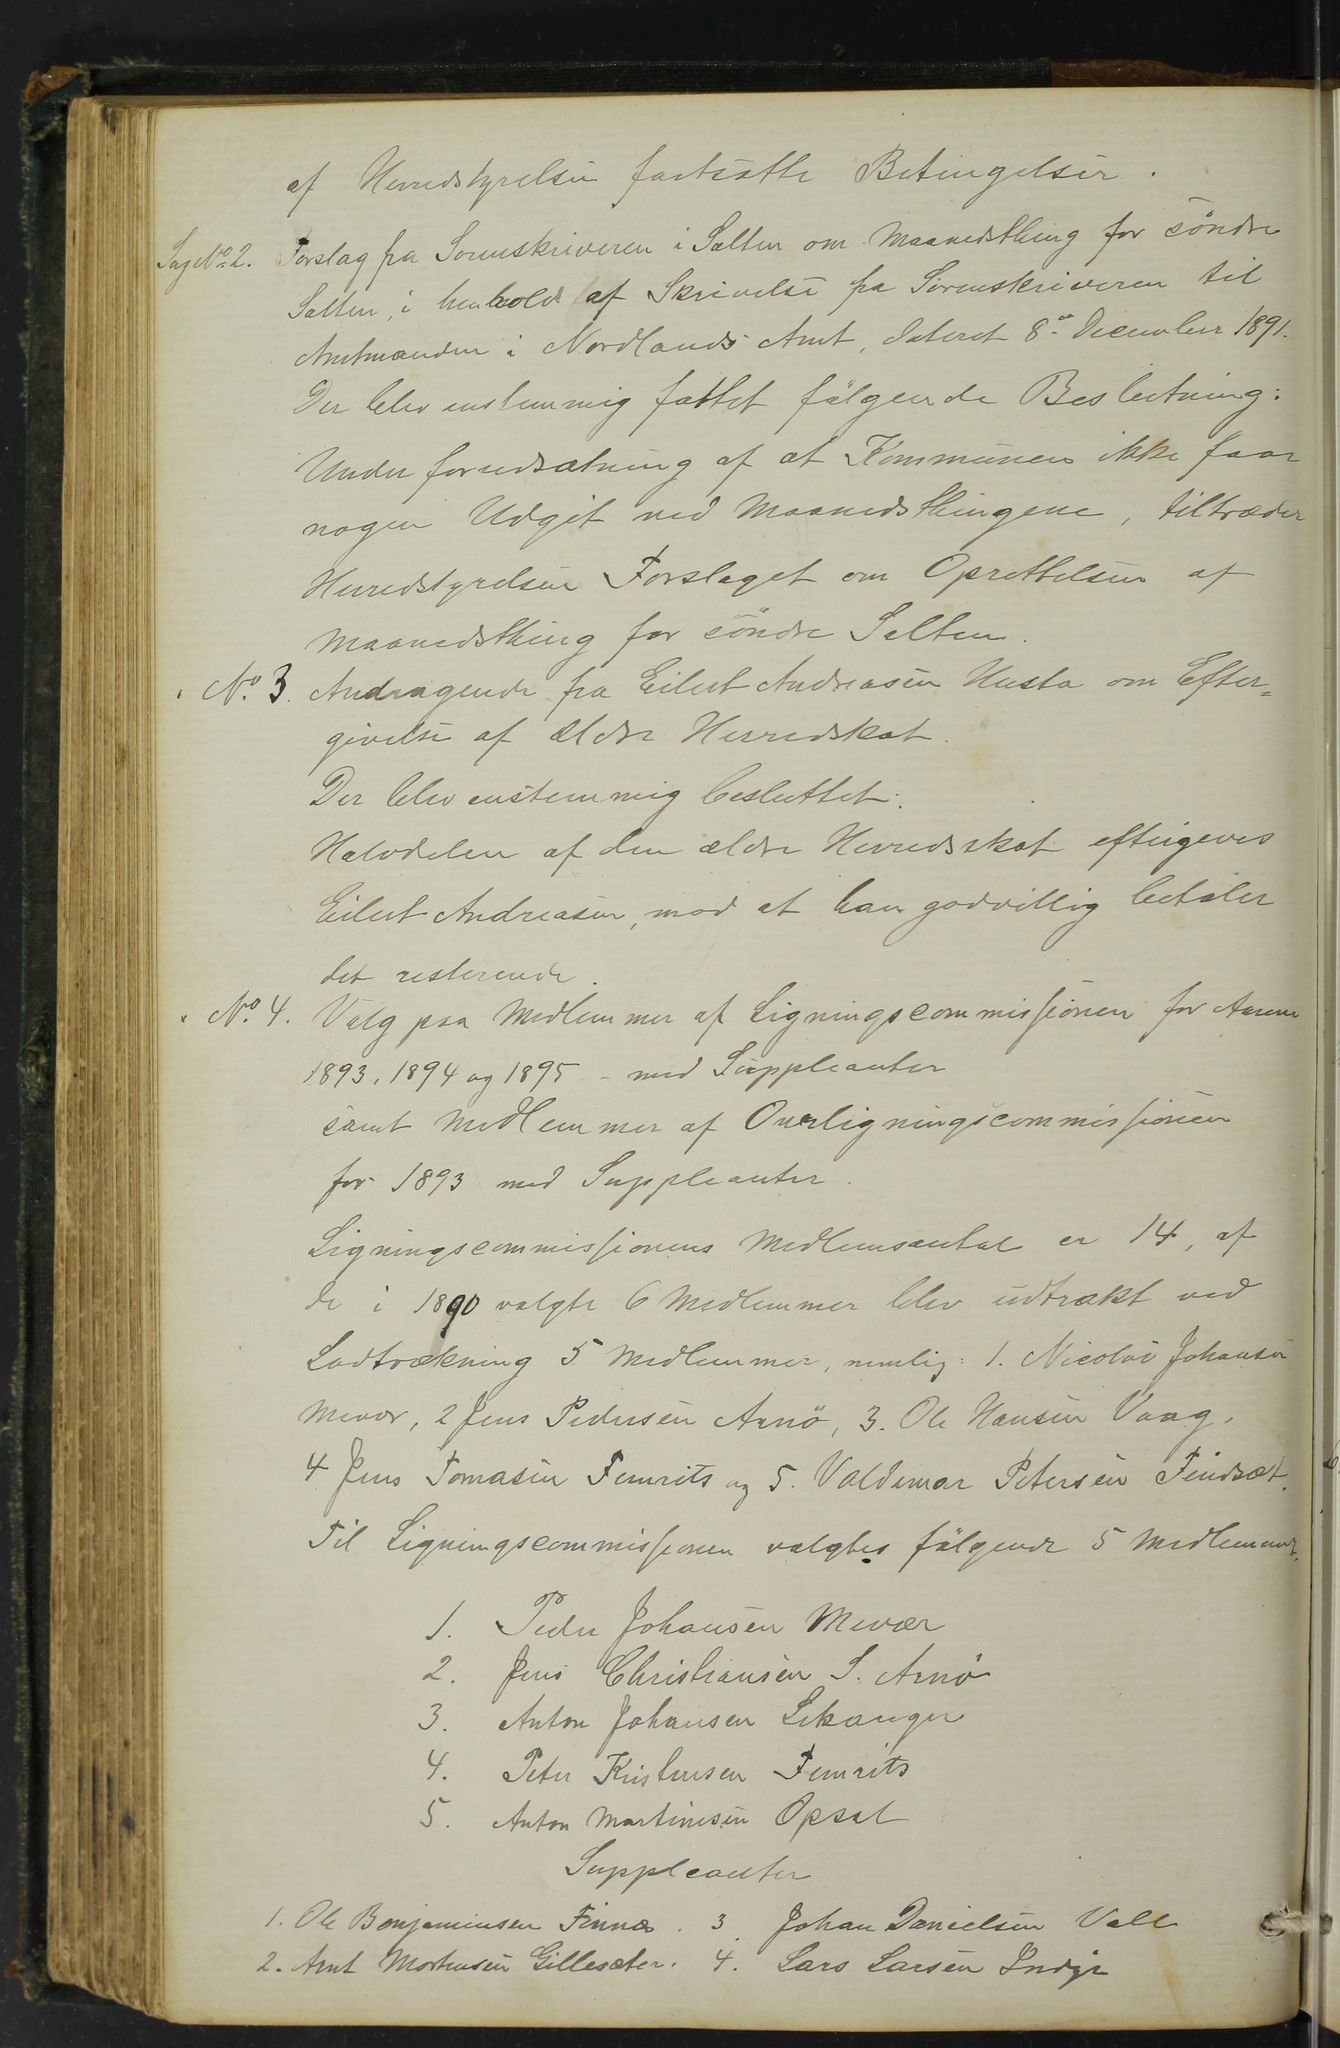 af Herredstyrelsen fastsatte Betingelser.
Sag No. 2. Forslag fra Sorenskriveren i Salten om Maanedsthing for søndre
Salten, i henhold af Skrivelse fra Sorenskriveren til
Amtmanden i Nordlands Amt, dateret 8de December 1891.
Der blev enstemmig fattet følgende Beslutning:
Under forudsætning af at Kommunen ikke faar
nogen Udgift ved Maanedsthingene, tiltræder
Herredstyrelsen Forslaget om Oprettelsen af
Maanedsthing for søndre Salten.
" No. 3. Andragende fra Eilert Andreasen Husta om Efter=
givelse af ældre Herredskat.
Der blev enstemmig besluttet:
Halvdelen af den ældre Herredsskat eftergives
Eilert Andreasen, mod at han godvillig betaler
det resterende.
" No. 4. Valg paa Medlemmer af Ligningscommissionen for Aarene
1893, 1894 og 1895 - med Suppleanter
samt Medlemmer af Overligningscommissionen
for 1893 med Suppleanter.
Ligningscommissionens Medlemsantal er 14, af
de i 1890 valgte 6 Medlemmer blev udtrakt ved
Lodtrækning 5 Medlemmer, nemlig: 1. Nicolai Johansen
Mevær, 2 Jens Pedersen Arnø, 3. Ole Hansen Vaag,
4 Jens Tomasen Femris og 5. Valdemar Petersen Findsæt.
Til Ligningscommissionen valgtes følgende 5 Medlemmer.
1. Peder Johansen Mevær
2. Jens Christiansen S. Arnø
3. Anton Johansen Lekanger
4. Peter Kristensen Femris
5. Anton Martinesen Opsal
Suppleanter
1. Ole Benjaminsen Finnæs. 3. Johan Danielsen Vall
2. Arnt Mortensen Gillesæter. 4. Lars Larsen Indyr